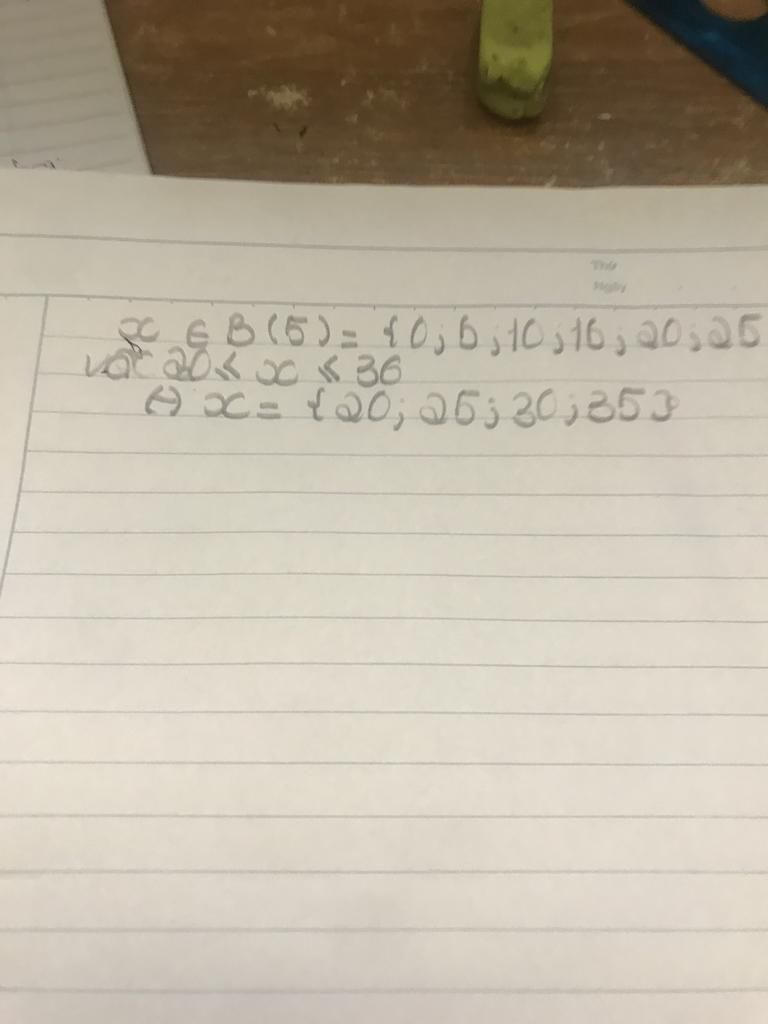 Thứ
Ngày
x ∈ B(5) = {0; 5; 10; 15; 20; 25
và 20 ≤ x ≤ 36
⇔ x = {20; 25; 30; 35}